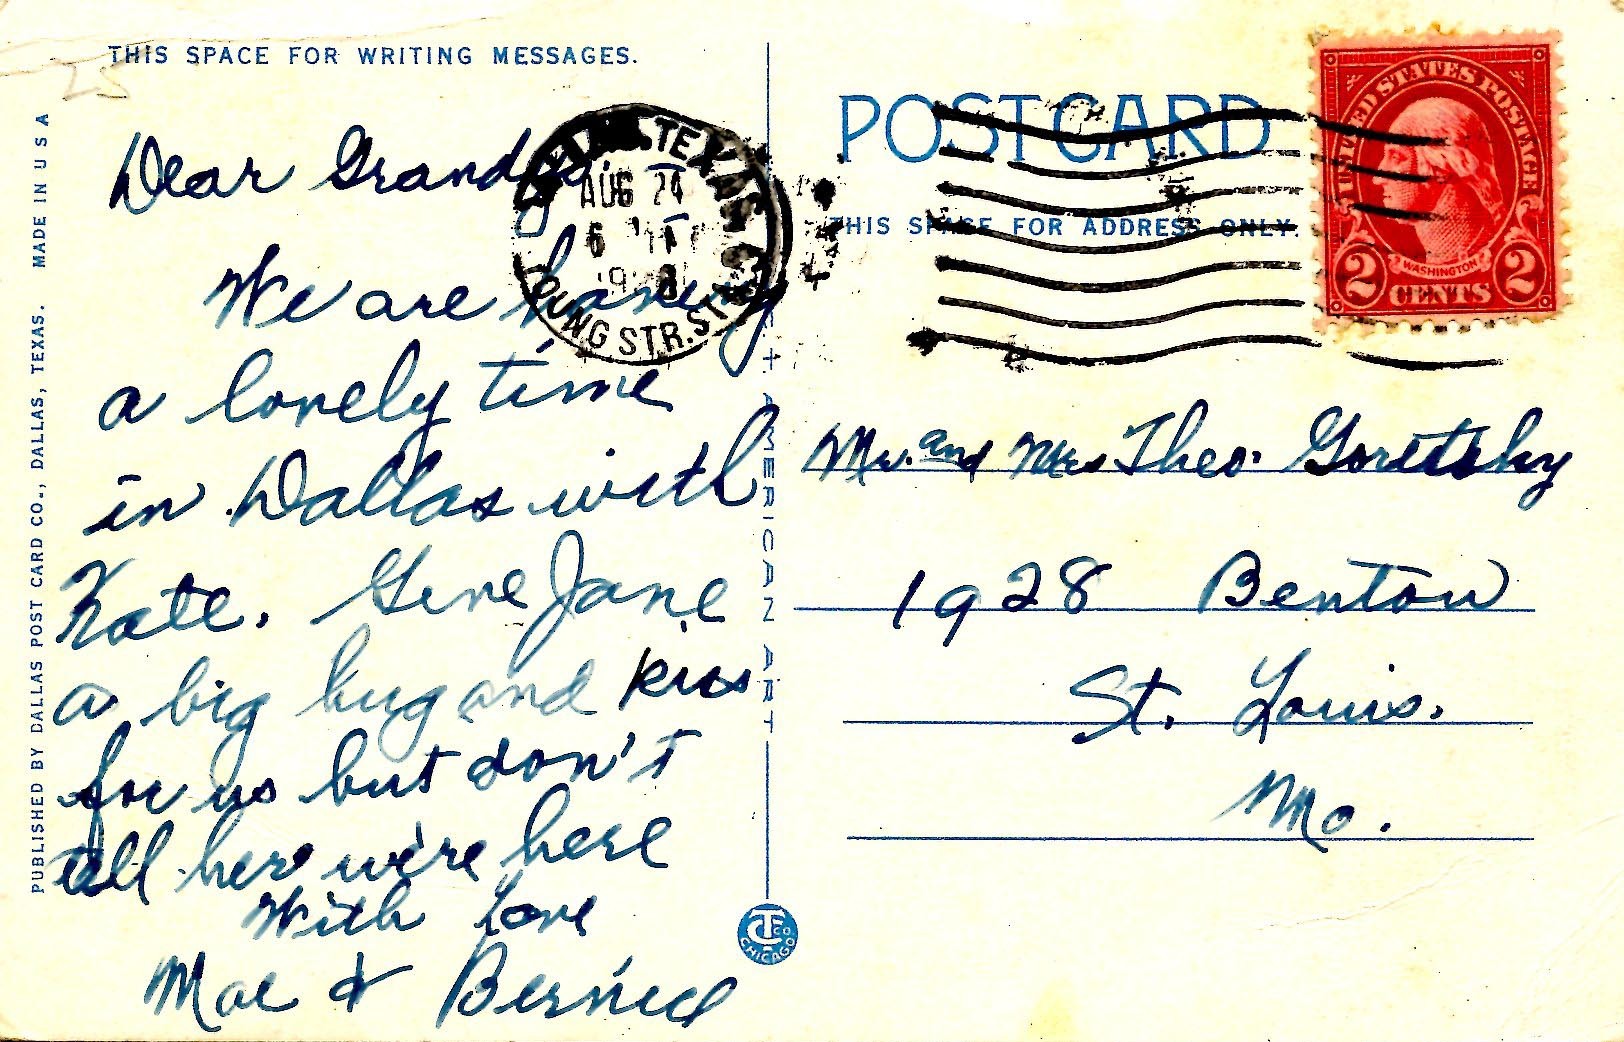 THIS SPACE FOR WRITING MESSAGES.
25
Dear
We are having
a lovely time
in Dallas with
Kate. Give Jane
a big hug and kiss
for us but don't
tell her we're here
With Love
Moe & Bernice
PUBLISHED BY DALLAS POST CARD CO., DALLAS, TEXAS. MADE IN U S A
AMERICAN ART
C.T. CO. CHICAGO
TEXAS
AUG 24
6
STR. STA.
POST CARD
THIS SPACE FOR ADDRESS ONLY.
UNITED STATES POSTAGE
WASHINGTON
2 CENTS 2
Mr. and Mrs Theo. Goretsky
1928 Benton
St. Louis.
Mo.